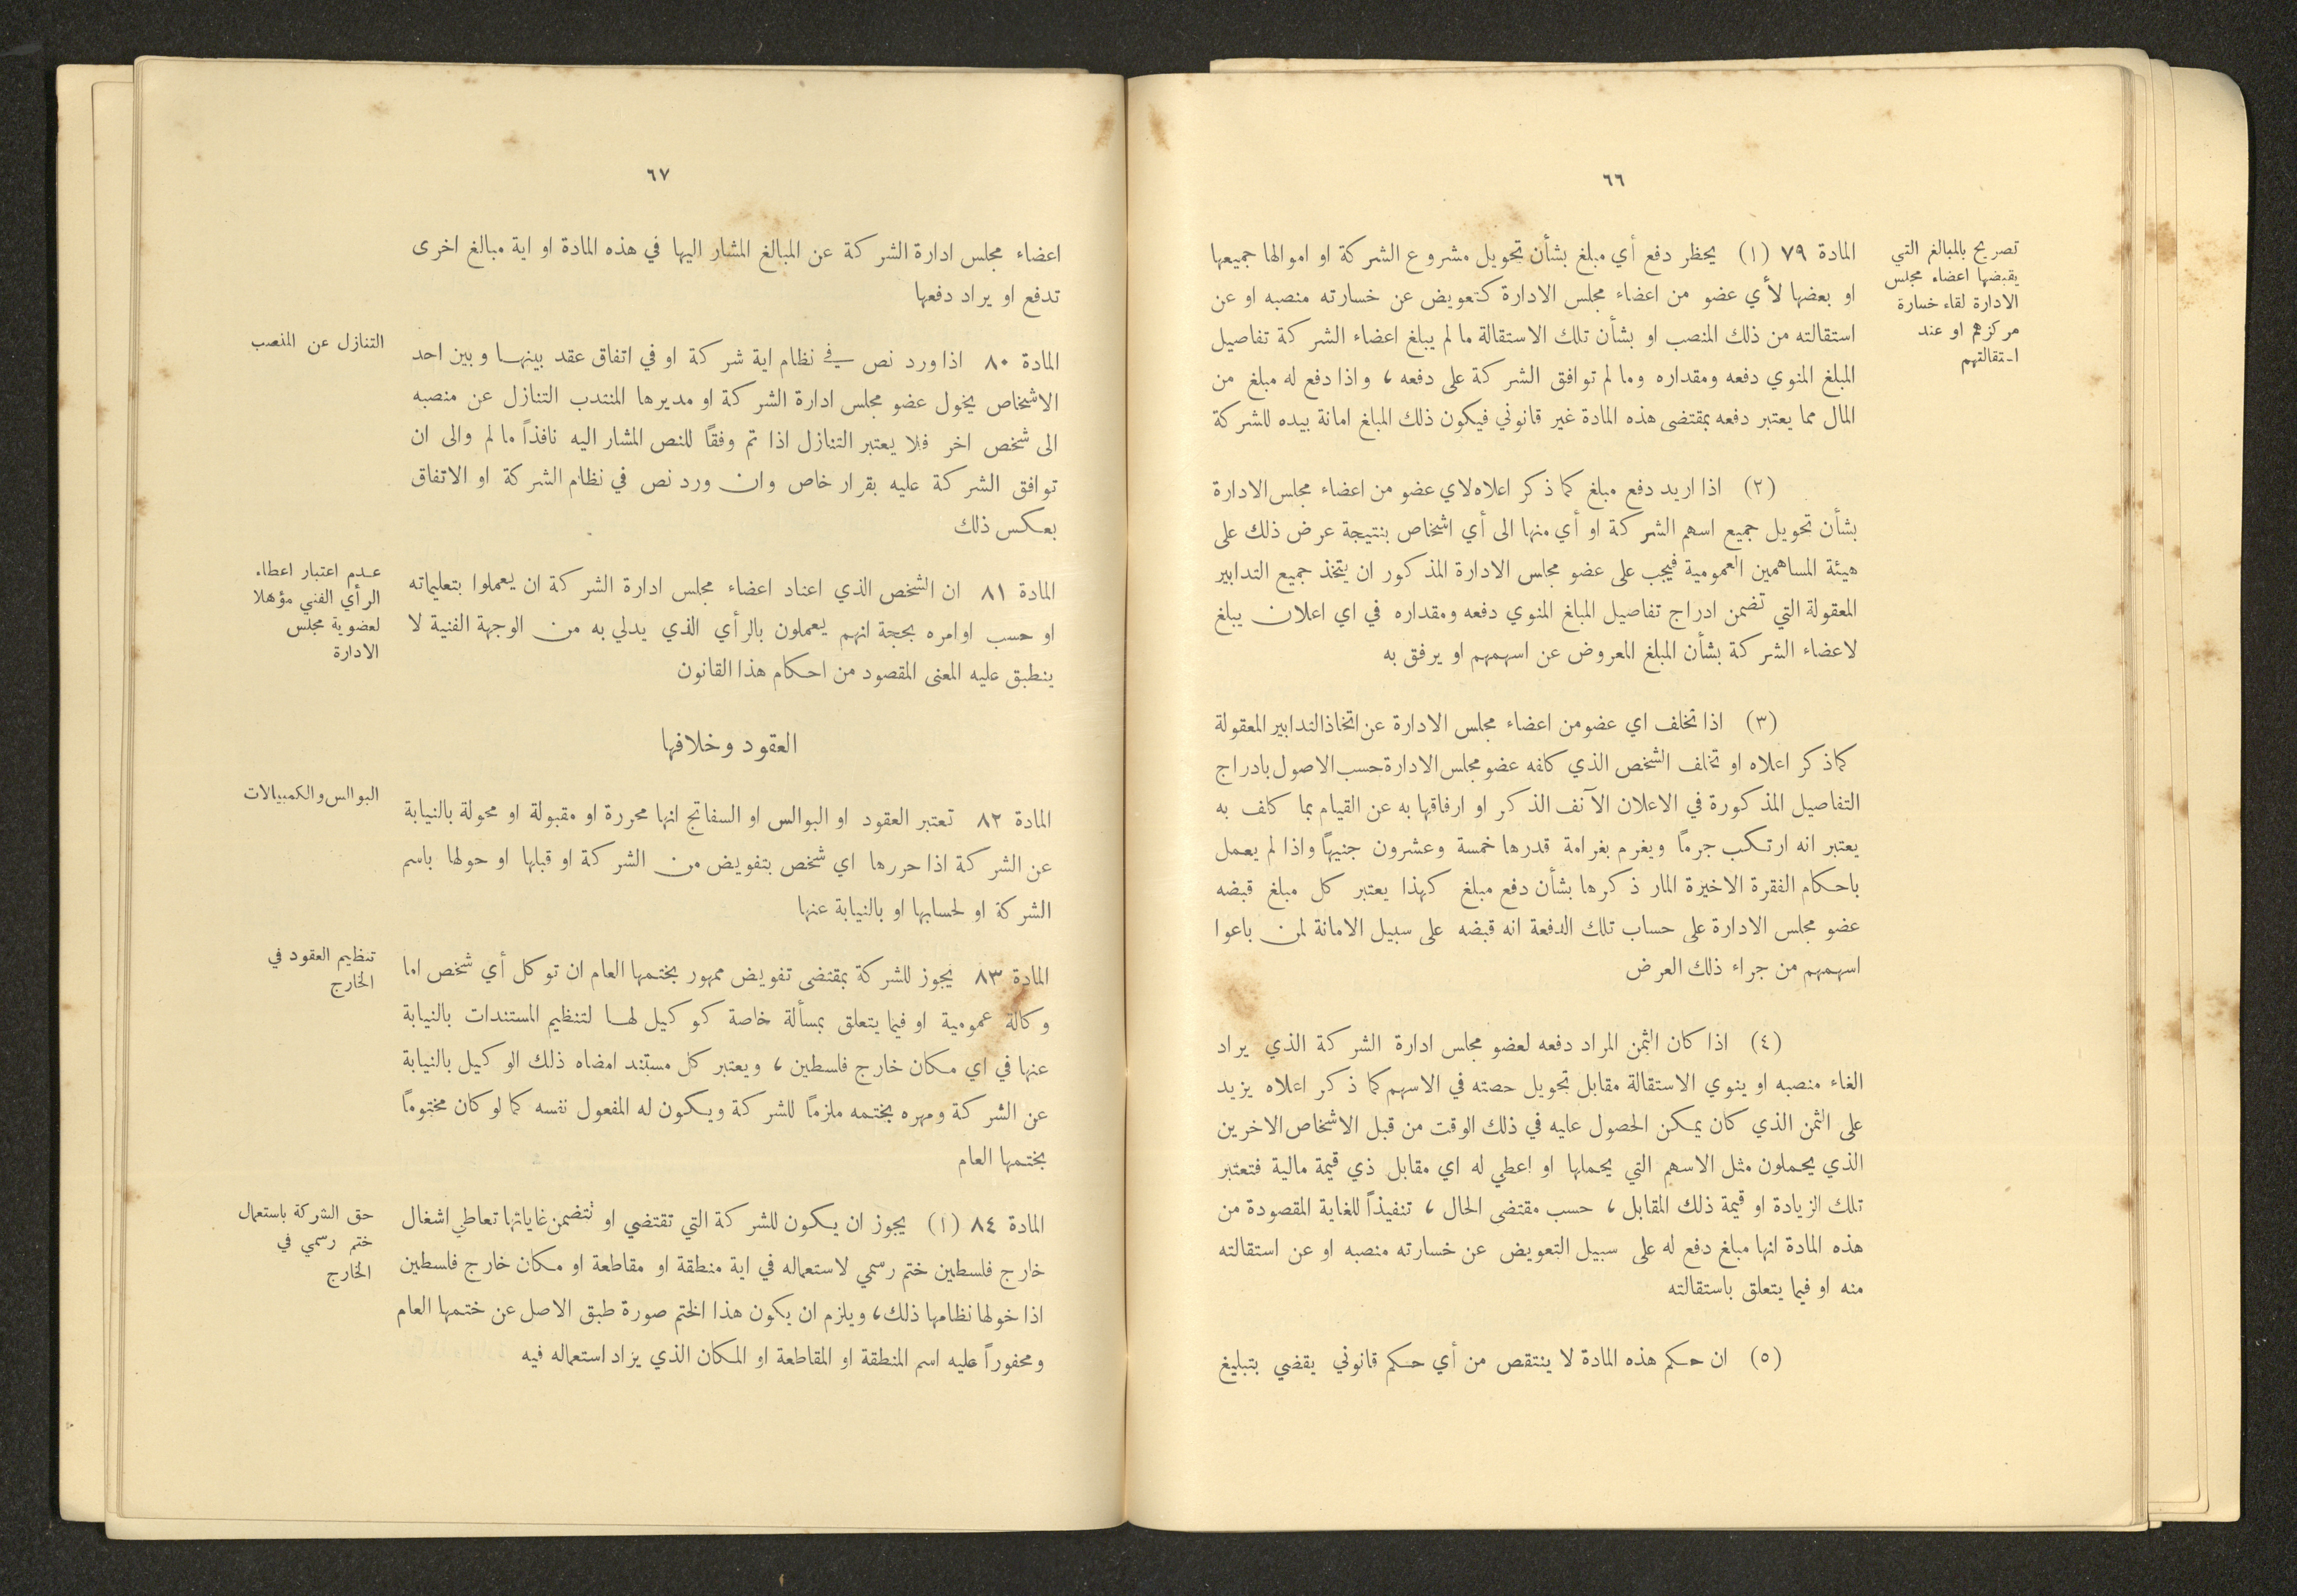 ٦٦
تصريح بالمبالغ التي
يقبضها اعضاء مجلس
الادارة لقاء خسارة
مركزهم او عند
استقالتهم
المادة ٧٩ (١) يحظر دفع أي مبلغ بشأن تحويل مشروع الشركة او اموالها جميعها
او بعضها لأي عضو من اعضاء مجلس الادارة كتعويض عن خسارته منصبه او عن
استقالته من ذلك المنصب او بشأن تلك الاستقالة ما لم يبلغ اعضاء الشركة تفاصيل
المبلغ المنوي دفعه ومقداره وما لم توافق الشركة على دفعه ، واذا دفع له مبلغ من
المال مما يعتبر دفعه بمقتضى هذه المادة غير قانوني فيكون ذلك المبلغ امانة بيده للشركة
(٢) اذا اريد دفع مبلغ كما ذكر اعلاه لاي عضو من اعضاء مجلس الادارة
بشأن تحويل جميع اسهم الشركة او أي منها الى أي اشخاص بنتيجة عرض ذلك على
هيئة المساهمين العمومية فيجب على عضو مجلس الادارة المذكور ان يتخذ جميع التدابير
المعقولة التي تضمن ادراج تفاصيل المبلغ المنوي دفعه ومقداره في اي اعلان يبلغ
لاعضاء الشركة بشأن المبلغ المعروض عن اسهمهم او يرفق به
(٣) اذا تخلف اي عضو من اعضاء مجلس الادارة عن اتخاذ التدابير المعقولة
كما ذكر اعلاه او تخلف الشخص الذي كلفه عضو مجلس الادارة حسب الاصول بادراج
التفاصيل المذكورة في الاعلان الآنف الذكر او ارفاقها به عن القيام بما كلف به
يعتبر انه ارتكب جرمًا ويغرم بغرامة قدرها خمسة وعشرون جنيهًا واذا لم يعمل
باحكام الفقرة الاخيرة المار ذكرها بشأن دفع مبلغ كهذا يعتبر كل مبلغ قبضه
عضو مجلس الادارة على حساب تلك الدفعة انه قبضه على سبيل الامانة لمن باعوا
اسهمهم من جراء ذلك العرض
(٤) اذا كان الثمن المراد دفعه لعضو مجلس ادارة الشركة الذي يراد
الغاء منصبه او ينوي الاستقالة مقابل تحويل حصته في الاسهم كما ذكر اعلاه يزيد
على الثمن الذي كان يمكن الحصول عليه في ذلك الوقت من قبل الاشخاص الاخرين
الذي يحملون مثل الاسهم التي يحملها او اعطي له اي مقابل ذي قيمة مالية فتعتبر
تلك الزيادة او قيمة ذلك المقابل ، حسب مقتضى الحال ، تنفيذاً للغاية المقصودة من
هذه المادة انها مبلغ دفع له على سبيل التعويض عن خسارته منصبه او عن استقالته
منه او فيما يتعلق باستقالته
(٥) ان حكم هذه المادة لا ينتقص من أي حكم قانوني يقضي بتبليغ
٦٧
اعضاء مجلس ادارة الشركة عن المبالغ المشار اليها في هذه المادة او اية مبالغ اخرى
تدفع او يراد دفعها
التنازل عن المنصب
المادة ٨٠ اذا ورد نص في نظام اية شركة او في اتفاق عقد بينها وبين احد
الاشخاص يخول عضو مجلس ادارة الشركة او مديرها المنتدب التنازل عن منصبه
الى شخص اخر فلا يعتبر التنازل اذا تم وفقًا للنص المشار اليه نافذاً ما لم والى ان
توافق الشركة عليه بقرار خاص وان ورد نص في نظام الشركة او الاتفاق
بعكس ذلك
عدم اعتبار اعطاء
الرأي الفني مؤهلا
لعضوية مجلس
الادارة
المادة ٨١ ان الشخص الذي اعتاد اعضاء مجلس ادارة الشركة ان يعملوا بتعليماته
او حسب اوامره بحجة انهم يعملون بالرأي الذي يدلي به من الوجهة الفنية لا
ينطبق عليه المعنى المقصود من احكام هذا القانون
العقود وخلافها
البوالس والكمبيالات
المادة ٨٢ تعتبر العقود او البوالس او السفاتج انها محررة او مقبولة او محولة بالنيابة
عن الشركة اذا حررها اي شخص بتفويض من الشركة او قبلها او حولها باسم
الشركة او لحسابها او بالنيابة عنها
تنظيم العقود في
الخارج
المادة ٨٣ يجوز للشركة بمقتضى تفويض ممهور بختمها العام ان توكل أي شخص اما
وكالة عمومية او فيما يتعلق بمسألة خاصة كوكيل لها لتنظيم المستندات بالنيابة
عنها في اي مكان خارج فلسطين ، ويعتبر كل مستند امضاه ذلك الوكيل بالنيابة
عن الشركة ومهره بختمه ملزمًا للشركة ويكون له المفعول نفسه كما لو كان مختومًا
بختمها العام
حق الشركة باستعمال
ختم رسمي في
الخارج
المادة ٨٤ (١) يجوز ان يكون للشركة التي تقتضي او تتضمن غاياتها تعاطي اشغال
خارج فلسطين ختم رسمي لاستعماله في اية منطقة او مقاطعة او مكان خارج فلسطين
اذا خولها نظامها ذلك ، ويلزم ان يكون هذا الختم صورة طبق الاصل عن ختمها العام
ومحفوراً عليه اسم المنطقة او المقاطعة او المكان الذي يراد استعماله فيه